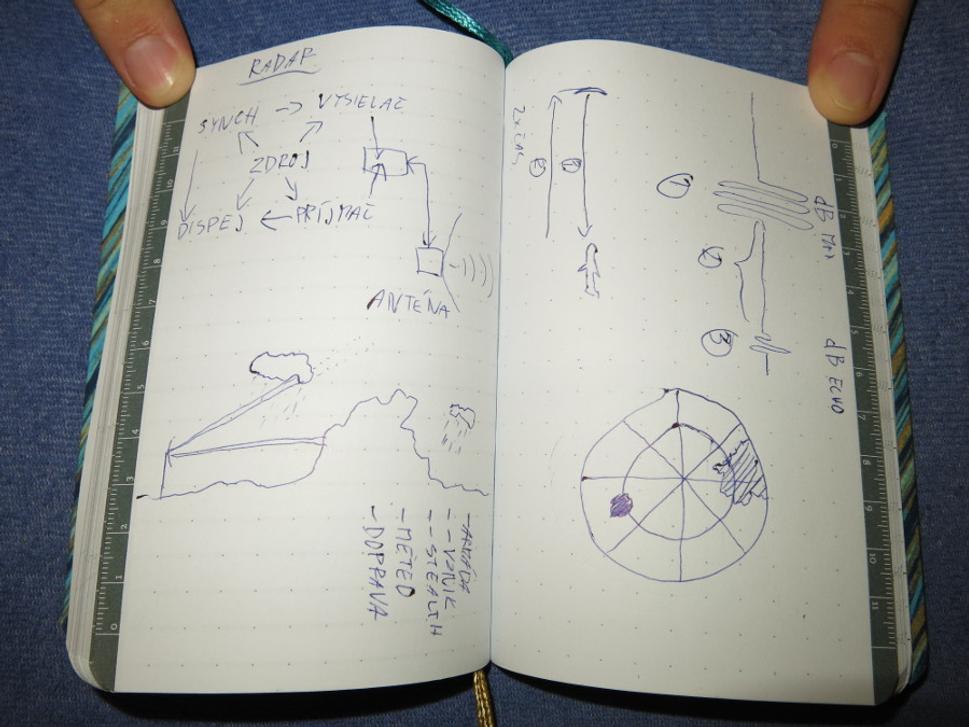 RADAR
SYNCH → VYSIELAČ
ZDROJ
DISPEJ ← PRÍJMAČ
ANTÉNA
-ARMÁDA
--VZNIK
--STEALTH
-METEO
-DOPRAVA
2x ČAS
②
①
dB MAX
①
②
③
dB ECHO